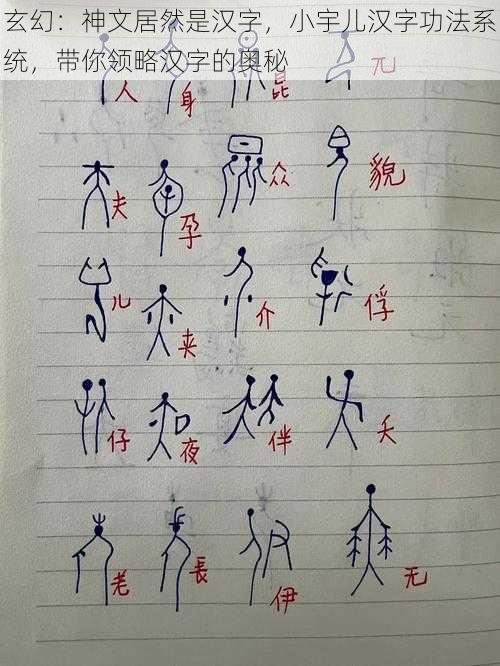 玄幻：神文居然是汉字，小宇儿汉字功法系
统，带你领略汉字的奥秘
人 身 昆 兀
夫 孕 众 貌
儿 夹 介 俘
仔 夜 伴 夭
老 長 伊 无